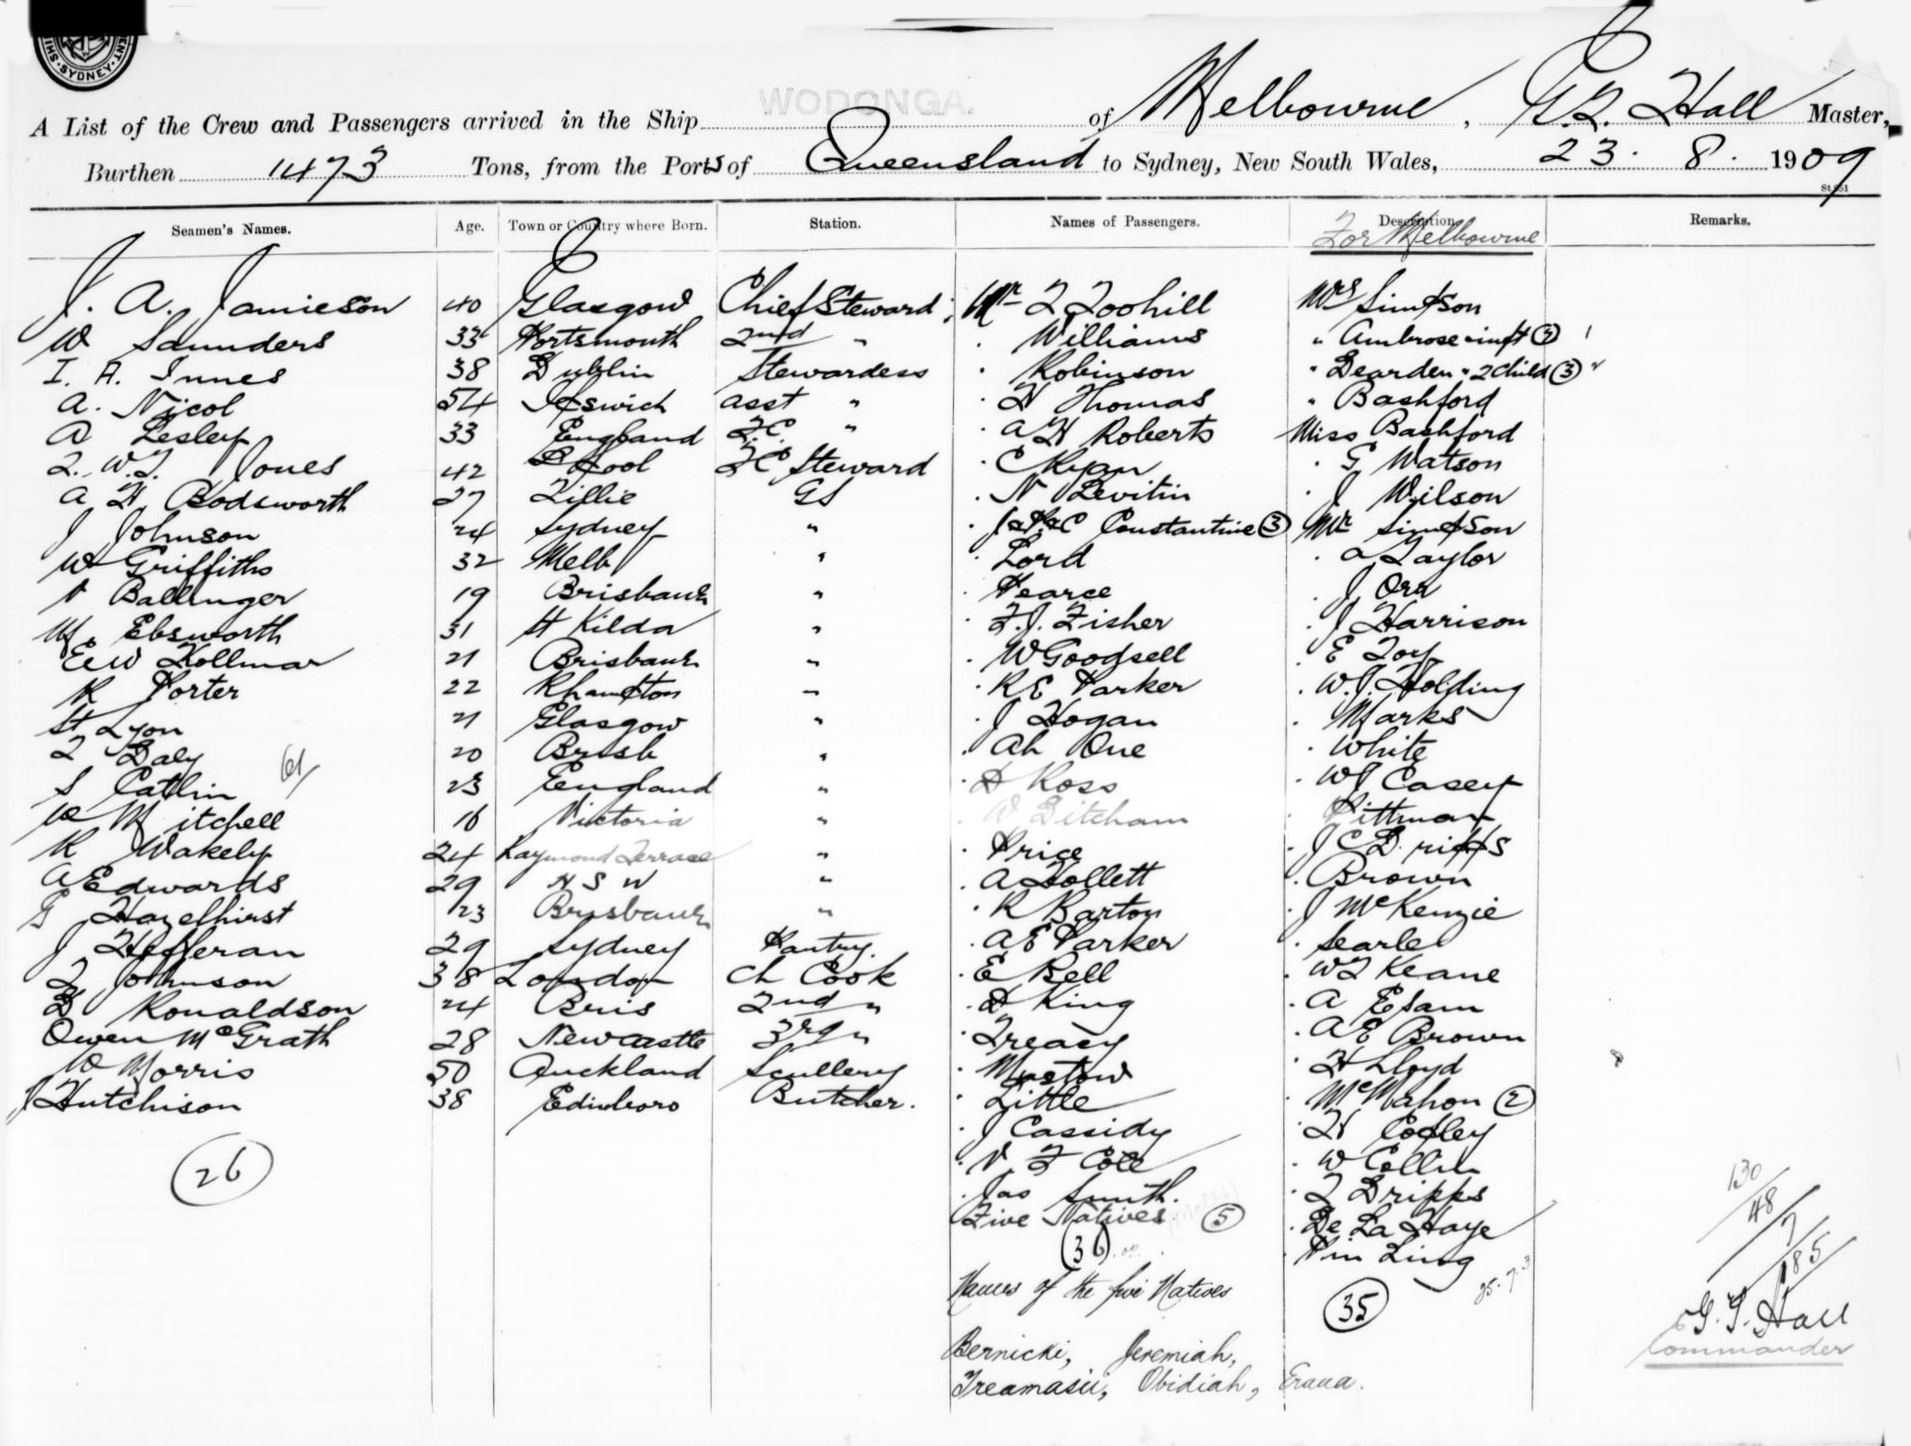 SYDNEY
WODONGA.
A List of the Crew and Passengers arrived in the Ship of Melbourne, G.T. Hall Master,
Burthen 1473 Tons, from the Ports of Queensland to Sydney, New South Wales, 23. 8. 1909
Seamen's Names. Age. Town or Country where Born. Station. Names of Passengers. Description For Melbourne Remarks.
J. A. Jamieson 40 Glasgow Chief Steward Mr T Toohill Mrs Simpson
W Saunders 33 Portsmouth 2nd " Williams " Ambrose inft (2)
I. A. Innes 38 Dublin Stewardess Robinson " Dearden " 2 Child (3)
A. Nicol 54 Ipswich asst " H Thomas " Bashford
A Lesley 33 England F.C. " A H Roberts Miss Bashford
T. W.T. Jones 42 L'pool F C Steward C Ryan G Watson
A H Bodsworth 27 Lillie GS N Levitin J Wilson
J Johnson 24 Sydney " J & P & C Constantine (3) Mr Simpson
W Griffiths 32 Melb " Lord a Taylor
V Ballinger 19 Brisbane " Pearce J Orr
M. Ebsworth 31 St Kilda " F.J. Fisher J Harrison
E W Hollmar 21 Brisbane " W Goodsell E Toy
R Porter 22 Rhampton " R E Parker W.J. Holding
St Lyon 21 Glasgow " J Hogan Marks
T Daly 20 Brisb " Ah One White
S Catlin 61 23 England " D Ross W J Casey
W Mitchell 16 Victoria " W Ditcham Pittman
R Wakely 24 Raymond Terrace " Price J C Dripps
A Edwards 29 N S W " A Hollett Brown
G Hazelhirst 23 Brisbane " R Barton J McKenzie
J Hefferan 29 Sydney Pantry. A E Parker Searle
T Johnson 38 London Ch Cook E Bell W T Keane
D Ronaldson 24 Bris 2nd " D King A Esam
Owen McGrath 28 Newcastle 3rd " Treacy A E Brown
W Morris 50 Auckland Scullery Mostow H Lloyd
J Hutchison 38 Edinboro Butcher. Little McMahon (2)
J Cassidy H Copley
26 V F Cole W Collin
Jas Smith. T Dripps
Five Natives (5) De La Haye
36 Pin Ling
Names of the five Natives 35
130
48
7
185
G. T. Hall
Commander
Bernicki, Jeremiah,
Treamasii, Obidiah, Eraua.